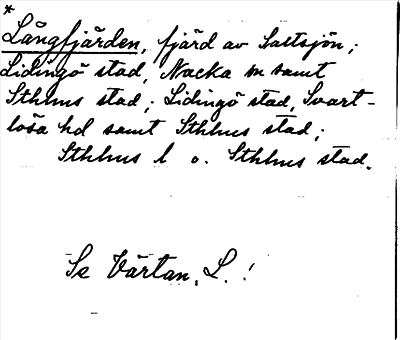 *
Långfjärden, fjärd av Saltsjön;
Lidingö stad, Nacka sn samt
Sthlms stad; Lidingö stad, Svart-
lösa hd samt Sthlms stad;
Sthlms l o. Sthlms stad.
Se Värtan, L. !